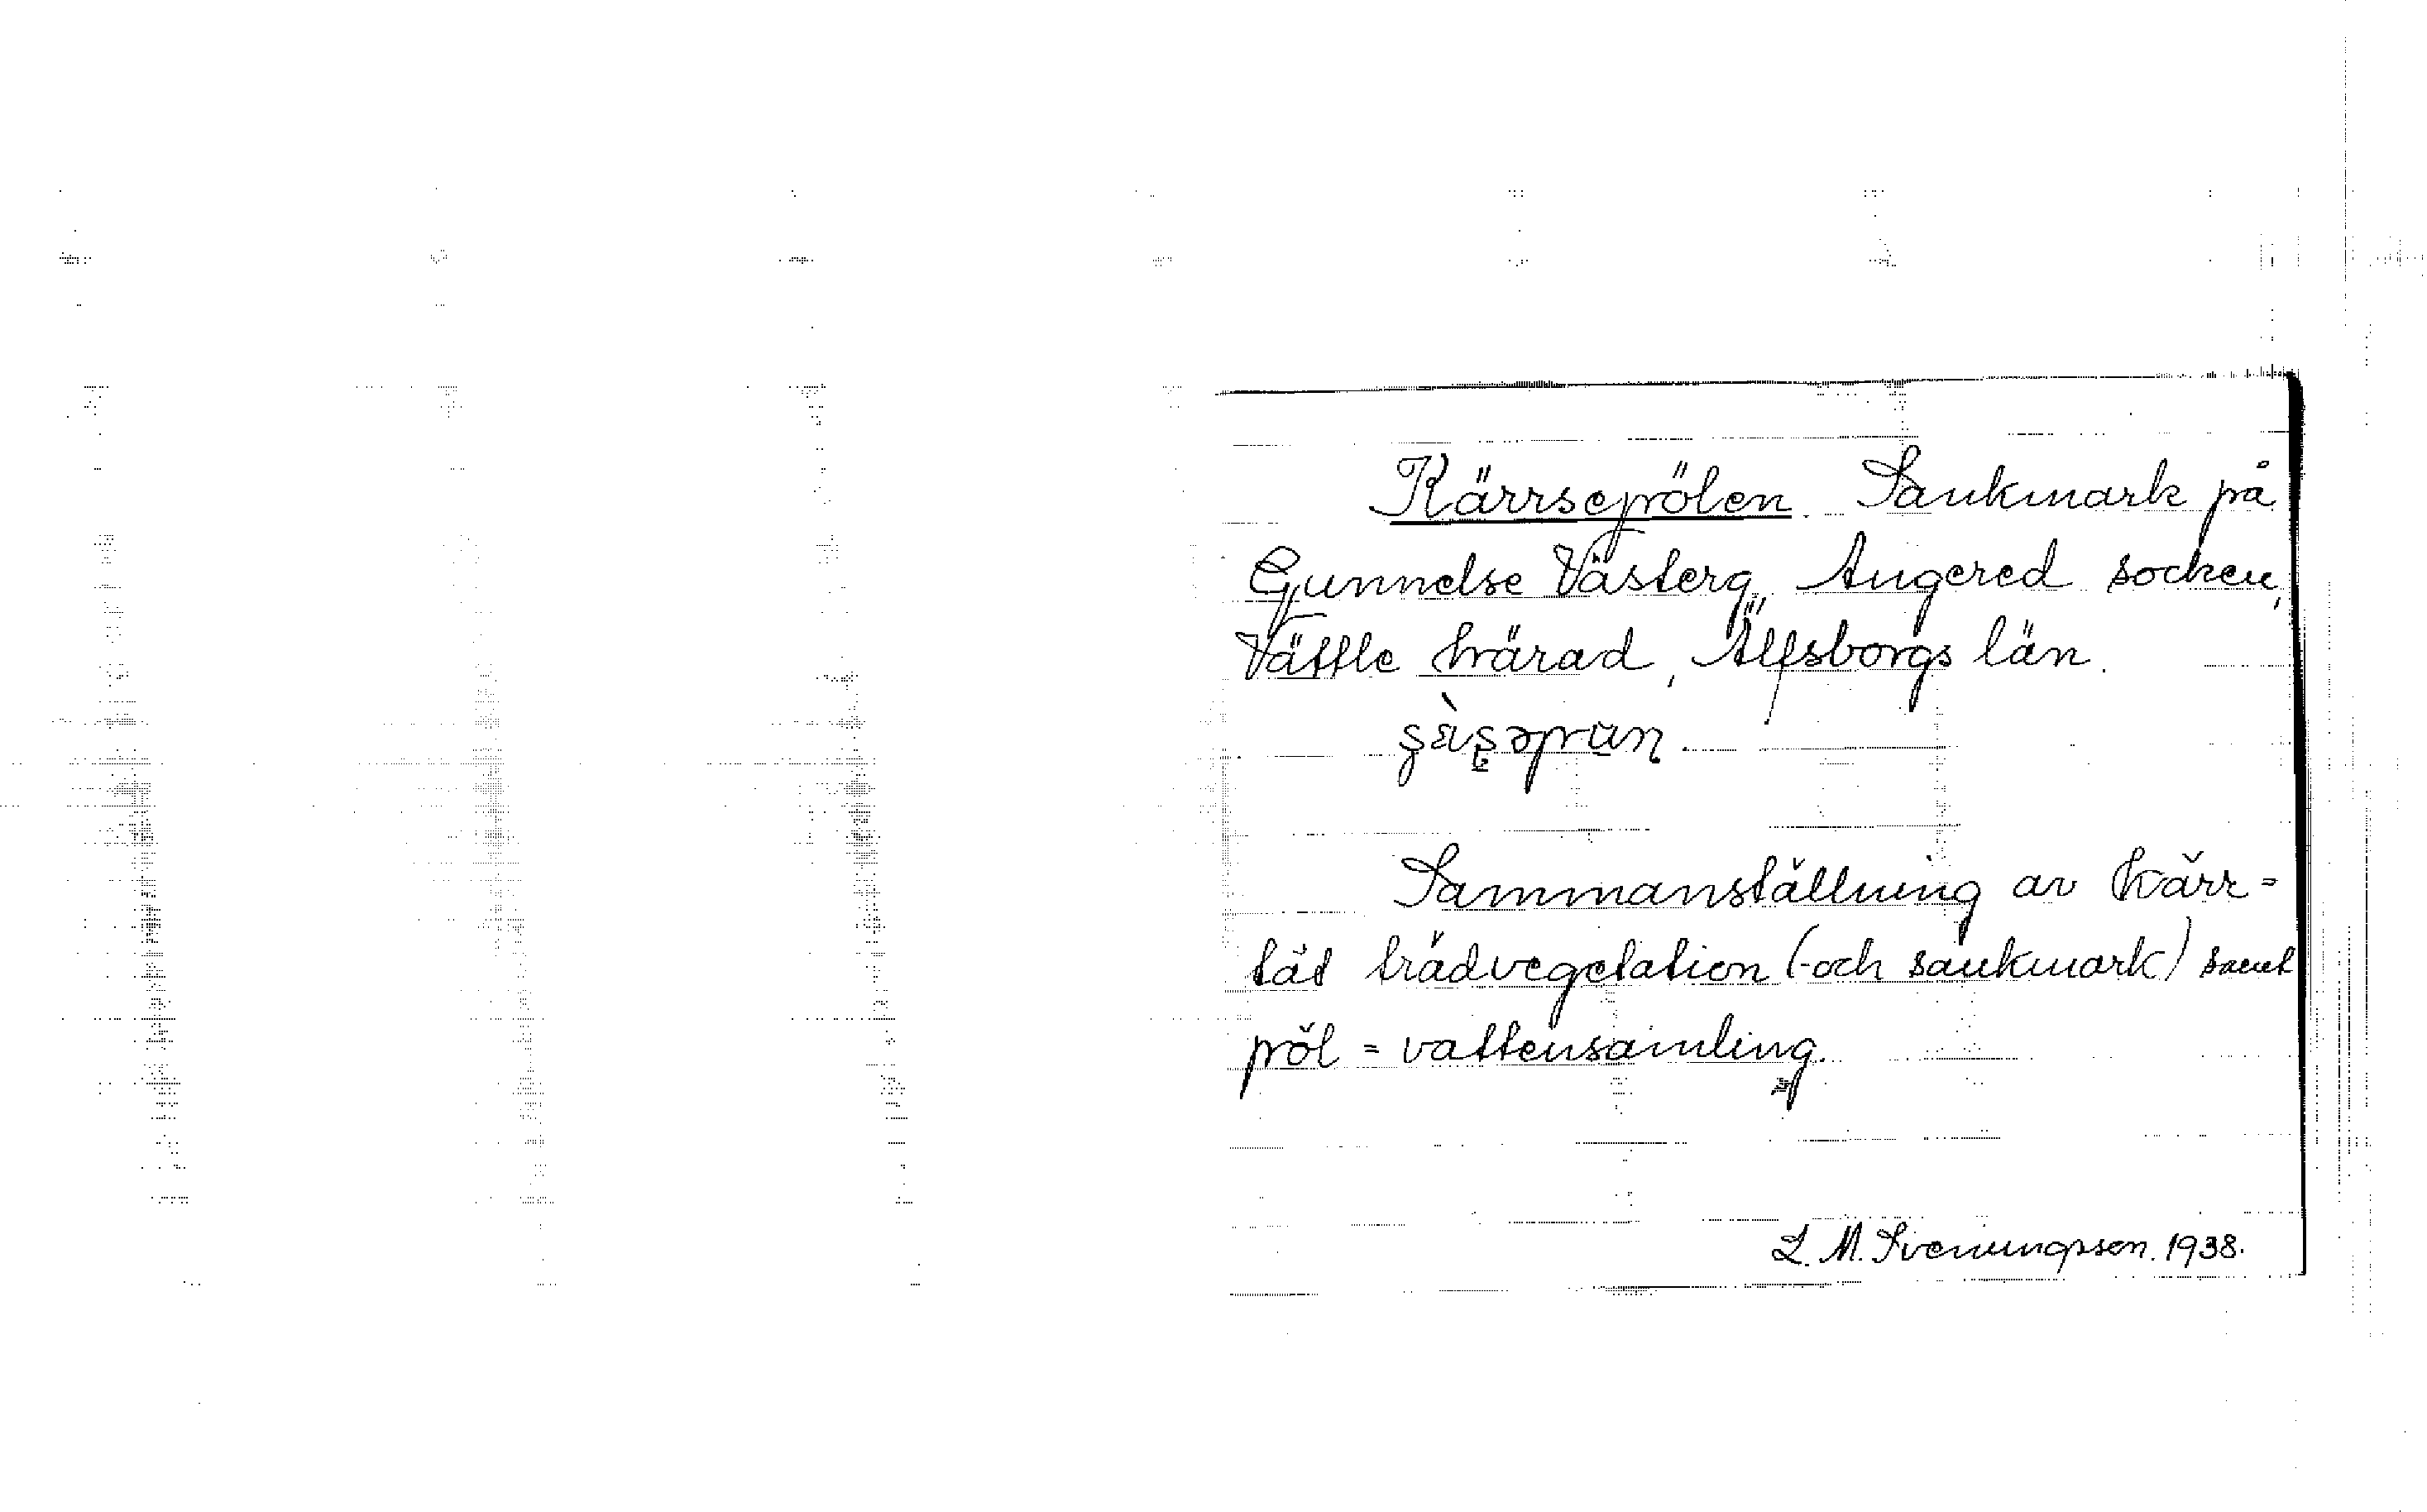 Kärrsepölen. Sankmark på
Gunnelse Västerg., Angered socken,
Vättle härad, Älfsborgs län.
Sammanställning av kärr =
tät trädvegetation (-och sankmark) samt
pöl = vattensamling.
L. M. Svenungsson. 1938.